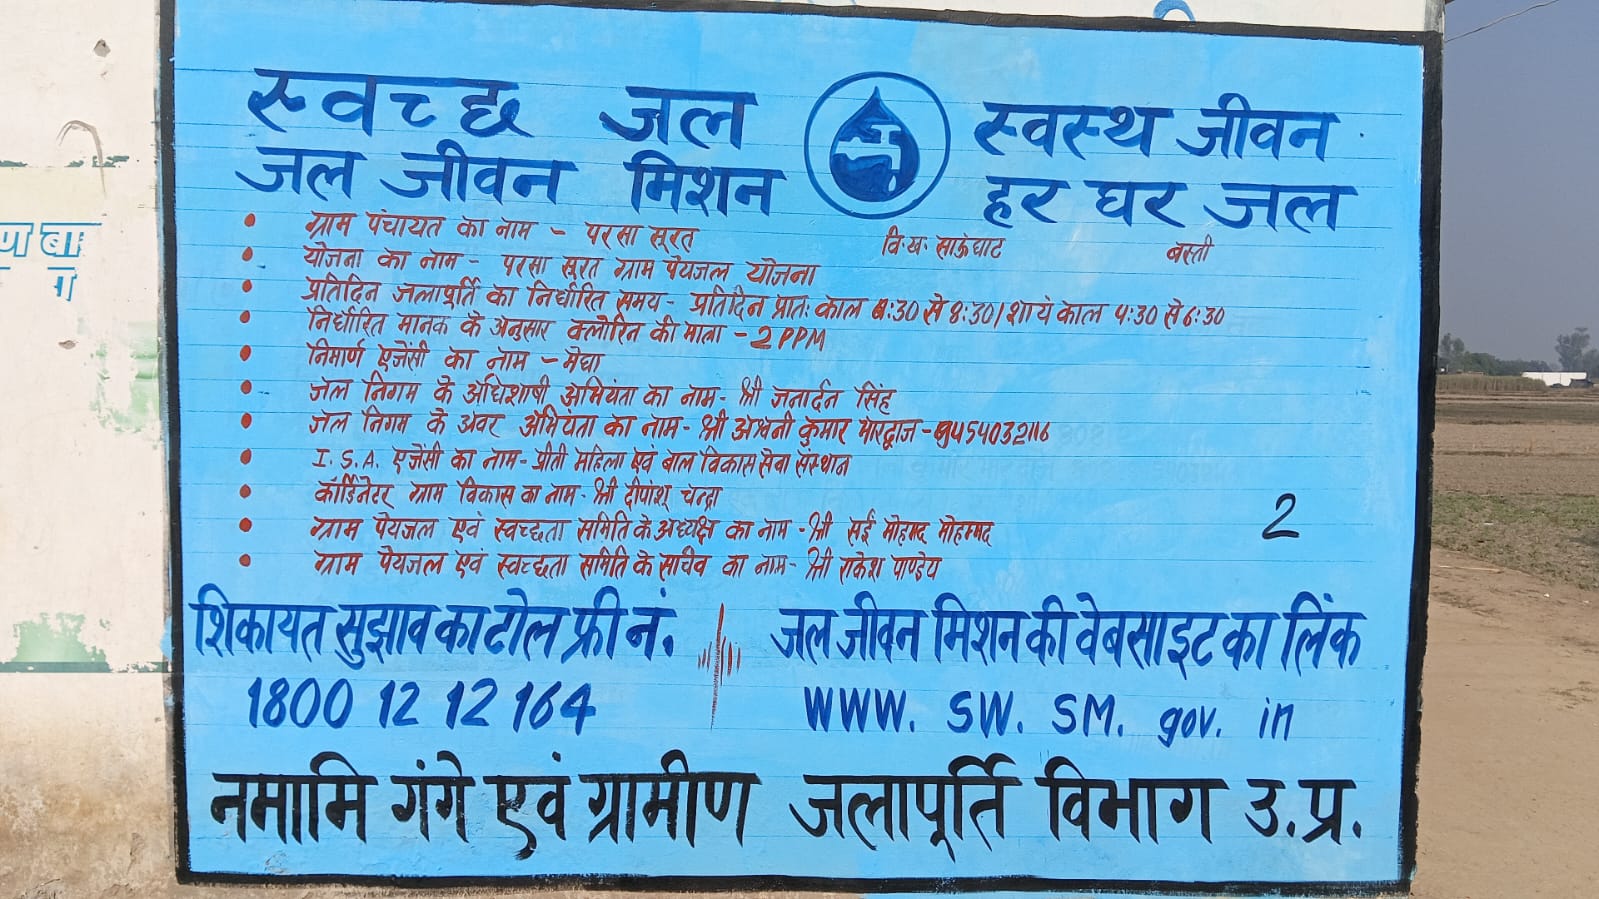 स्वच्छ जल स्वस्थ जीवन
जल जीवन मिशन हर घर जल
ग्राम पंचायत का नाम - परसा सूरत वि.ख: साऊंघाट बस्ती
योजना का नाम - परसा सूरत ग्राम पेयजल योजना
प्रतिदिन जलापूर्ति का निर्धारित समय - प्रतिदिन प्रात: काल 6:30 से 8:30/शायं काल 4:30 से 6:30
निर्धारित मानक के अनुसार क्लोरिन की मात्रा - 2 PPM
निमार्ण ऐजेंसी का नाम - मेघा
जल निगम के अधिशाषी अभियंता का नाम - श्री जनार्दन सिंह
जल निगम के अवर अभियंता का नाम - श्री अश्वनी कुमार भारद्वाज - 9454032116
I. S. A. ऐजेंसी का नाम - प्रीती महिला एवं बाल विकास सेवा संस्थान
कॉर्डिनेटर ग्राम विकास का नाम - श्री दीपांशू चन्द्रा
ग्राम पेयजल एवं स्वच्छता समिति के अध्यक्ष का नाम - श्री मोहम्मद
2
ग्राम पेयजल एवं स्वच्छता समिति के सचिव का नाम - श्री राकेश पाण्डेय
शिकायत सुझाव का टोल फ्री नं. जल जीवन मिशन की वेबसाइट का लिंक
1800 12 12 164 WWW. SW. SM. gov. in
नमामि गंगे एवं ग्रामीण जलापूर्ति विभाग उ.प्र.